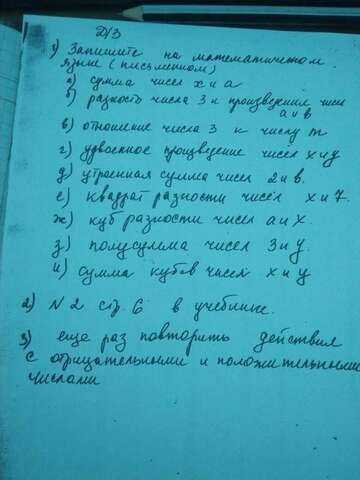 Д/З
1) Запишите на математическом
языке (письменном)
а) сумма чисел x и a
б) разность числа 3 и произведения чисел
a и b
в) отношение числа 3 к числу m
г) удвоенное произведение чисел x и y
д) утроенная сумма чисел 2 и b.
е) квадрат разности чисел x и 7.
ж) куб разности чисел a и x.
з) полусумма чисел 3 и y.
и) сумма кубов чисел x и y
2) N 2 стр. 6 в учебнике.
3) еще раз повторить действия
с отрицательными и положительными
числами